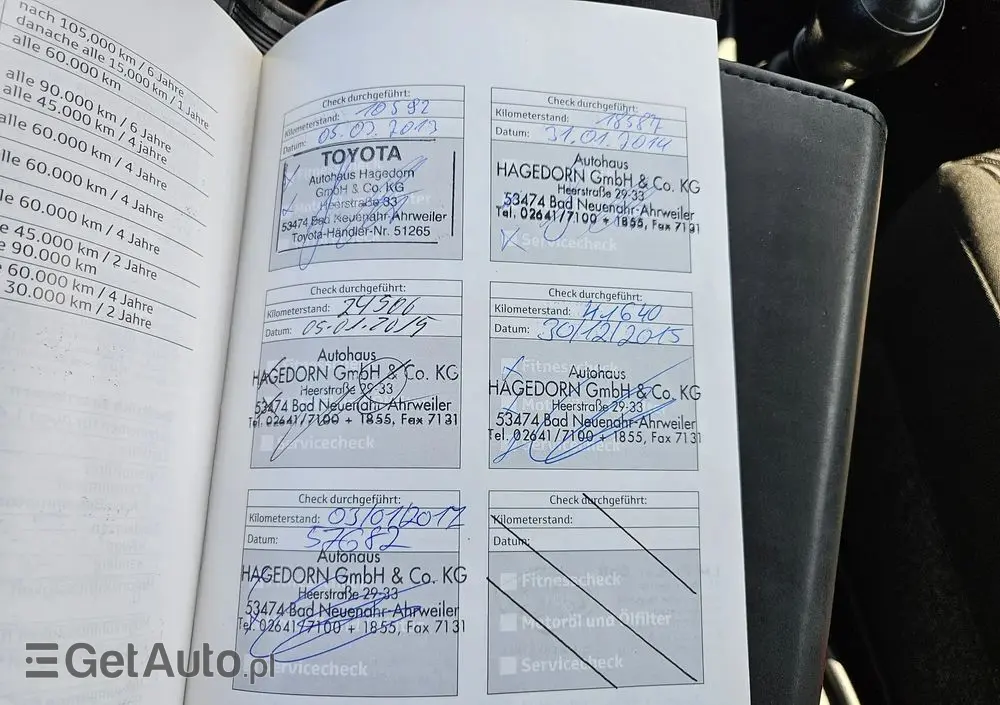 nach 105.000 km / 6 Jahre
danache alle 15.000 km / 1 Jahre
alle 60.000 km
alle 90.000 km / 6 Jahre
alle 45.000 km / 4 jahre
alle 60.000 km / 4 Jahre
alle 60.000 km / 4 Jahre
le 60.000 km / 4 Jahre
e 45.000 km / 2 Jahre
90.000 km
60.000 km / 4 Jahre
30.000 km / 2 Jahre
Check durchgeführt:
Kilometerstand: 10592
Datum: 05.03.2013
TOYOTA
Autohaus Hagedorn
GmbH & Co. KG
Heerstraße 33
53474 Bad Neuenahr-Ahrweiler
Toyota-Händler-Nr. 51265
Check durchgeführt:
Kilometerstand: 18587
Datum: 31.01.2014
Autohaus
HAGEDORN GmbH & Co. KG
Heerstraße 29-33
53474 Bad Neuenahr-Ahrweiler
Tel. 02641/7100 + 1855, Fax 7131
Servicecheck
Check durchgeführt:
Kilometerstand: 24506
Datum: 05.01.2015
Autohaus
HAGEDORN GmbH & Co. KG
Heerstraße 29-33
53474 Bad Neuenahr-Ahrweiler
Tel. 02641/7100 + 1855, Fax 7131
Servicecheck
Check durchgeführt:
Kilometerstand: 41640
Datum: 30/12/2015
Autohaus
HAGEDORN GmbH & Co. KG
Heerstraße 29-33
53474 Bad Neuenahr-Ahrweiler
Tel. 02641/7100 + 1855, Fax 7131
Check durchgeführt:
Kilometerstand: 03/01/2017
Datum: 57682
Autohaus
HAGEDORN GmbH & Co. KG
Heerstraße 29-33
53474 Bad Neuenahr-Ahrweiler
Tel. 02641/7100 + 1855, Fax 7131
Servicecheck
Check durchgeführt:
Kilometerstand:
Datum:
Fitnesscheck
Motoröl und Ölfilter
Servicecheck
GetAuto.pl